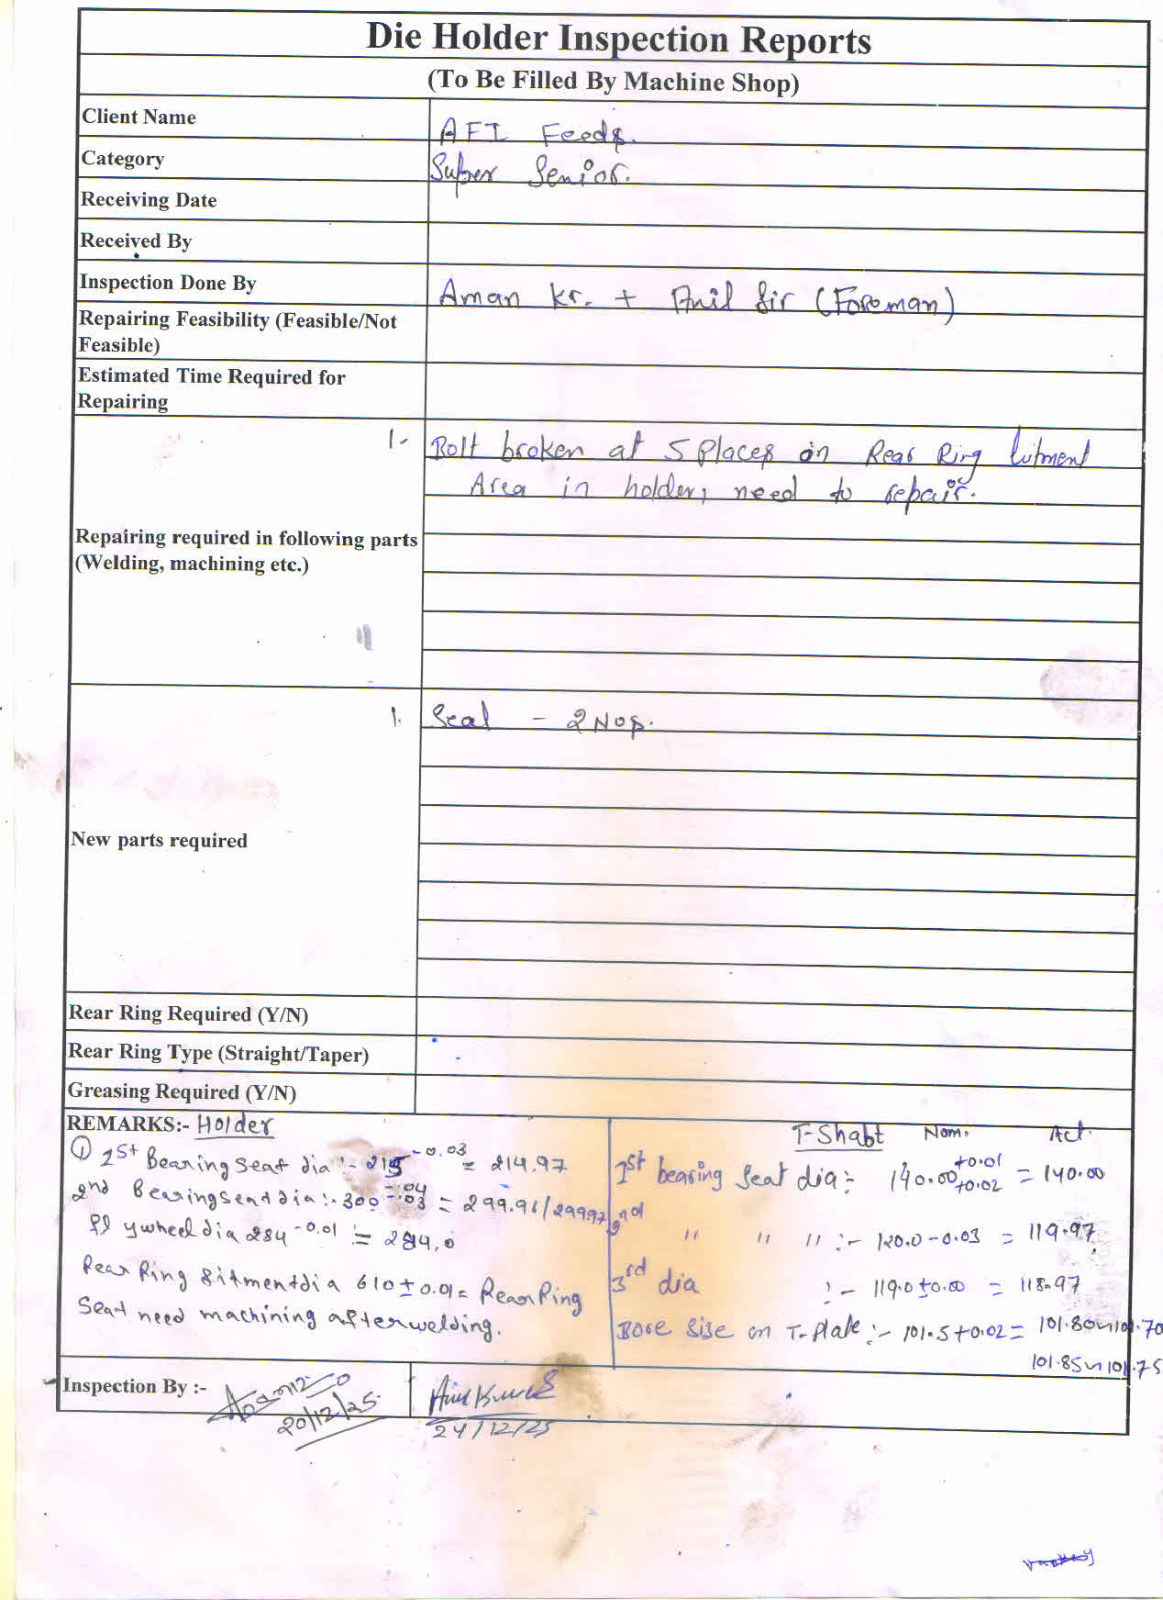 Die Holder Inspection Reports
(To Be Filled By Machine Shop)
Client Name AFI Feeds.
Category Super Senior.
Receiving Date
Received By
Inspection Done By Aman Kr. + Anil Sir (Foreman)
Repairing Feasibility (Feasible/Not
Feasible)
Estimated Time Required for
Repairing
1- Bolt broken at 5 Places on Rear Ring fitment
Area in holder, need to repair.
Repairing required in following parts
(Welding, machining etc.)
1. Seal - 2 Nos.
New parts required
Rear Ring Required (Y/N)
Rear Ring Type (Straight/Taper)
Greasing Required (Y/N)
REMARKS:- Holder
① 1st Bearing Seat dia :- 215 -0.03 = 214.97
2nd Bearing seat dia :- 300 -.04 -.03 = 299.96/299.97
Flywheel dia 284 -0.01 = 284.0
Rear Ring fitment dia 610 ± 0.01 = Rear Ring
Seat need machining after welding.
T-Shaft Nom. Act.
1st bearing Seat dia :- 140.00 +0.01 +0.02 = 140.00
2nd " " " :- 120.0 - 0.03 = 119.97
3rd dia :- 119.0 ± 0.00 = 118.97
Bore Size on T-Plate :- 101.5 + 0.02 = 101.80 101.70
101.85 101.75
Inspection By :-
20/12/25
24/12/25